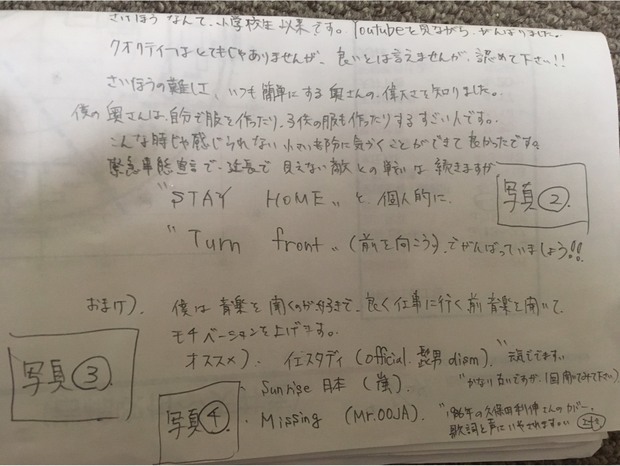 さいほうなんて、小学校生以来です。Youtubeを見ながら、がんばりました。
クオリティーはとてもじゃありませんが、良いとは言えませんが、認めて下さい!!
さいほうの難しさ、いつも簡単にする奥さんの、偉大さを知りました。
僕の奥さんは、自分で服を作ったり、子供の服も作ったりするすごい人です。
こんな時じゃ感じられない小さい部分に気づくことができて良かったです。
緊急事態宣言で、延長で見えない敵との戦いは続きますが
"STAY HOME"と、個人的に、
写真②
"Turn front"(前を向こう)、でがんばっていきましょう!!
おまけ)、僕は音楽を聞くのが好きで、良く仕事に行く前音楽を聞いて、
モチベーションを上げます。
写真③
オススメ)、イエスタデイ(Official髭男dism)、"元気でます。"
・Sunrise 日本(嵐)"かなり古いですが、1回聞いてみて下さい)
写真④
・Missing (Mr.OOJA)"1986年の久保田利伸さんのカバー、
歌詞と声にいやされます。"